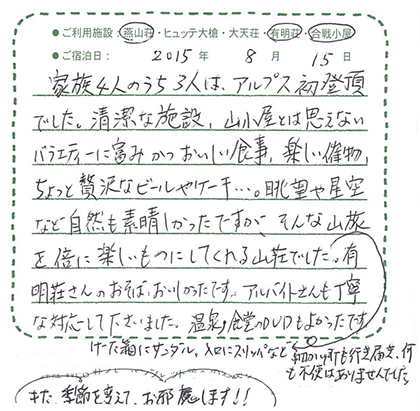 ●ご利用施設：燕山荘・ヒュッテ大槍・大天荘・有明荘・合戦小屋
●ご宿泊日： 2015年 8月 15日
家族4人のうち3人は、アルプス初登頂
でした。清潔な施設、山小屋とは思えない
バラエティーに富みかつおいしい食事、楽しい催物、
ちょっと贅沢なビールやケーキ…。眺望や星空
など自然も素晴しかったですが、そんな山旅
を倍に楽しいものにしてくれる山荘でした。有
明荘さんのおそば、おいしかったです。アルバイトさんも丁寧
な対応して下さいました。温泉、食堂のDVDもよかったです
げた箱にサンダル、入口にスリッパなど
細かい所も行き届き、何
も不便はありませんでした。
また季節を変えて、お邪魔します!!